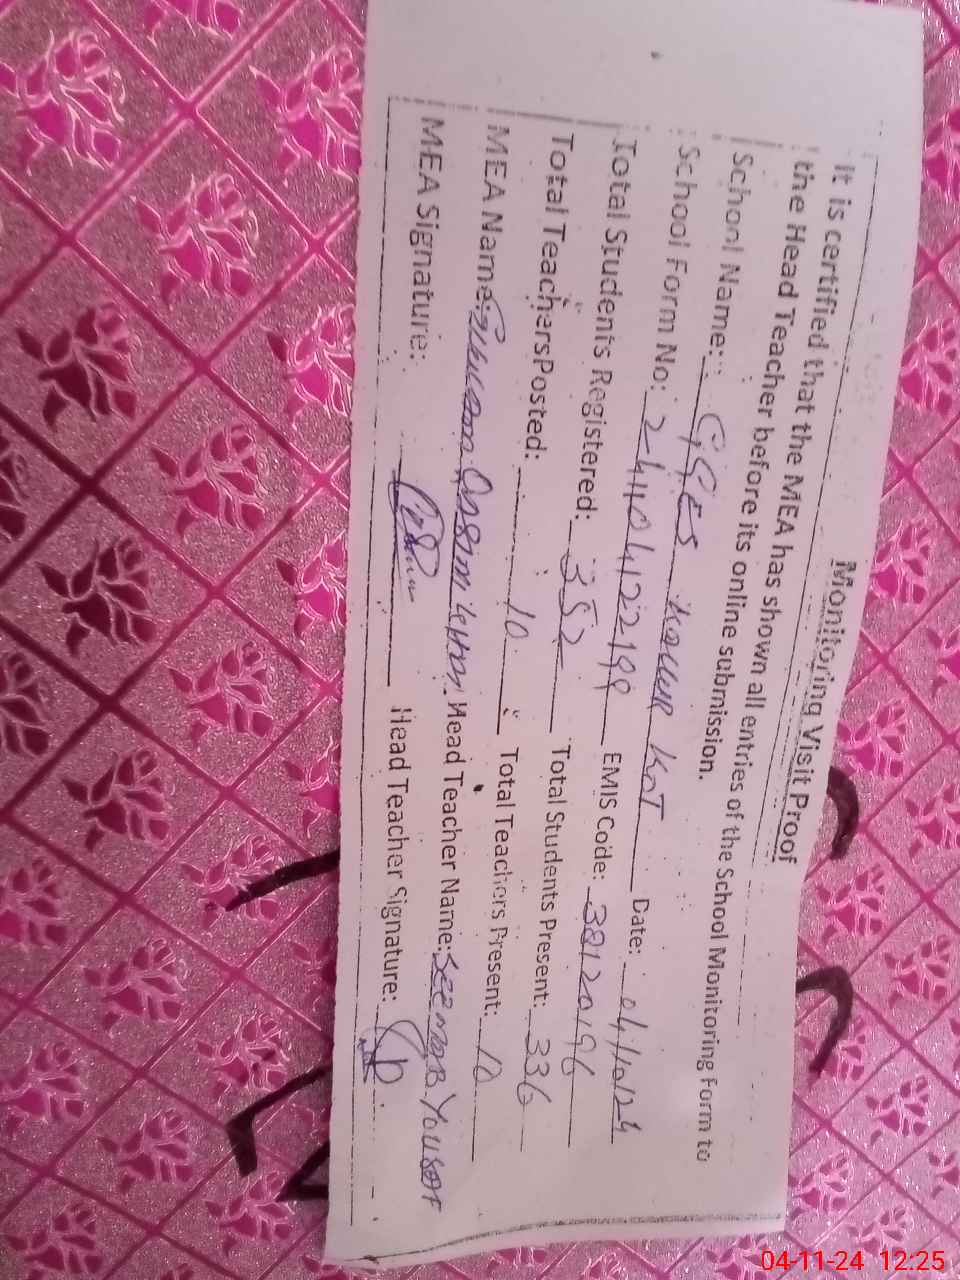 Monitoring Visit Proof
It is certified that the MEA has shown all entries of the School Monitoring Form to
the Head Teacher before its online submission.
School Name: GGES KOT Date: 04/10/24
School Form No: 2-44104122199 EMIS Code: 38120196
Total Students Registered: 352 Total Students Present: 336
Total Teachers Posted: 10 Total Teachers Present: 10
MEA Name: Qasim Head Teacher Name: Yousaf
MEA Signature: Head Teacher Signature:
04-11-24 12:25